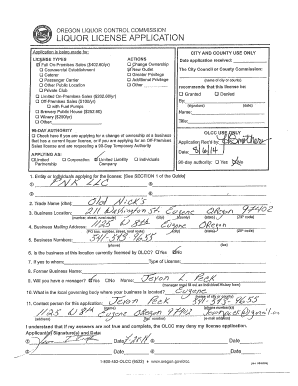 OREGON LIQUOR CONTROL COMMISSION
LIQUOR LICENSE APPLICATION
Application is being made for:
LICENSE TYPES
Full On-Premises Sales ($402.60/yr)
Commercial Establishment
Caterer
Passenger Carrier
Other Public Location
Private Club
Limited On-Premises Sales ($202.60/yr)
Off-Premises Sales ($100/yr)
with Fuel Pumps
Brewery Public House ($252.60)
Winery ($250/yr)
Other:
ACTIONS
Change Ownership
New Outlet
Greater Privilege
Additional Privilege
Other
90-DAY AUTHORITY
Check here if you are applying for a change of ownership at a business
that has a current liquor license, or if you are applying for an Off-Premises
Sales license and are requesting a 90-Day Temporary Authority
APPLYING AS:
Limited Partnership
Corporation
Limited Liability Company
Individuals
CITY AND COUNTY USE ONLY
Date application received:
The City Council or County Commission:
(name of city or county)
recommends that this license be:
Granted
Denied
By:
(signature) (date)
Name:
Title:
OLCC USE ONLY
Application Rec'd by:
Date: 8/6/14
90-day authority: Yes No
1. Entity or Individuals applying for the license: [See SECTION 1 of the Guide]
PNK LLC
2. Trade Name (dba): Old Nick's
3. Business Location: 211 Washington St Eugene Oregon 97402
(number, street, rural route) (city) (county) (state) (ZIP code)
4. Business Mailing Address: 1125 W 8th Eugene Oregon
(PO box, number, street, rural route) (city) (state) (ZIP code)
5. Business Numbers: 541-393-9655
(phone) (fax)
6. Is the business at this location currently licensed by OLCC? Yes No
7. If yes to whom: Type of License:
8. Former Business Name:
9. Will you have a manager? Yes No Name: Jevon L Peck
(manager must fill out an Individual History form)
10. What is the local governing body where your business is located? Eugene
(name of city or county)
11. Contact person for this application: Jevon Peck 541-393 9655
(name) (phone number(s))
1125 W 8th Eugene Oregon 97402
(address) (fax number) (e-mail address)
I understand that if my answers are not true and complete, the OLCC may deny my license application.
Applicant(s) Signature(s) and Date:
Date
Date
Date
Date
1-800-452-OLCC (6522) • www.oregon.gov/olcc